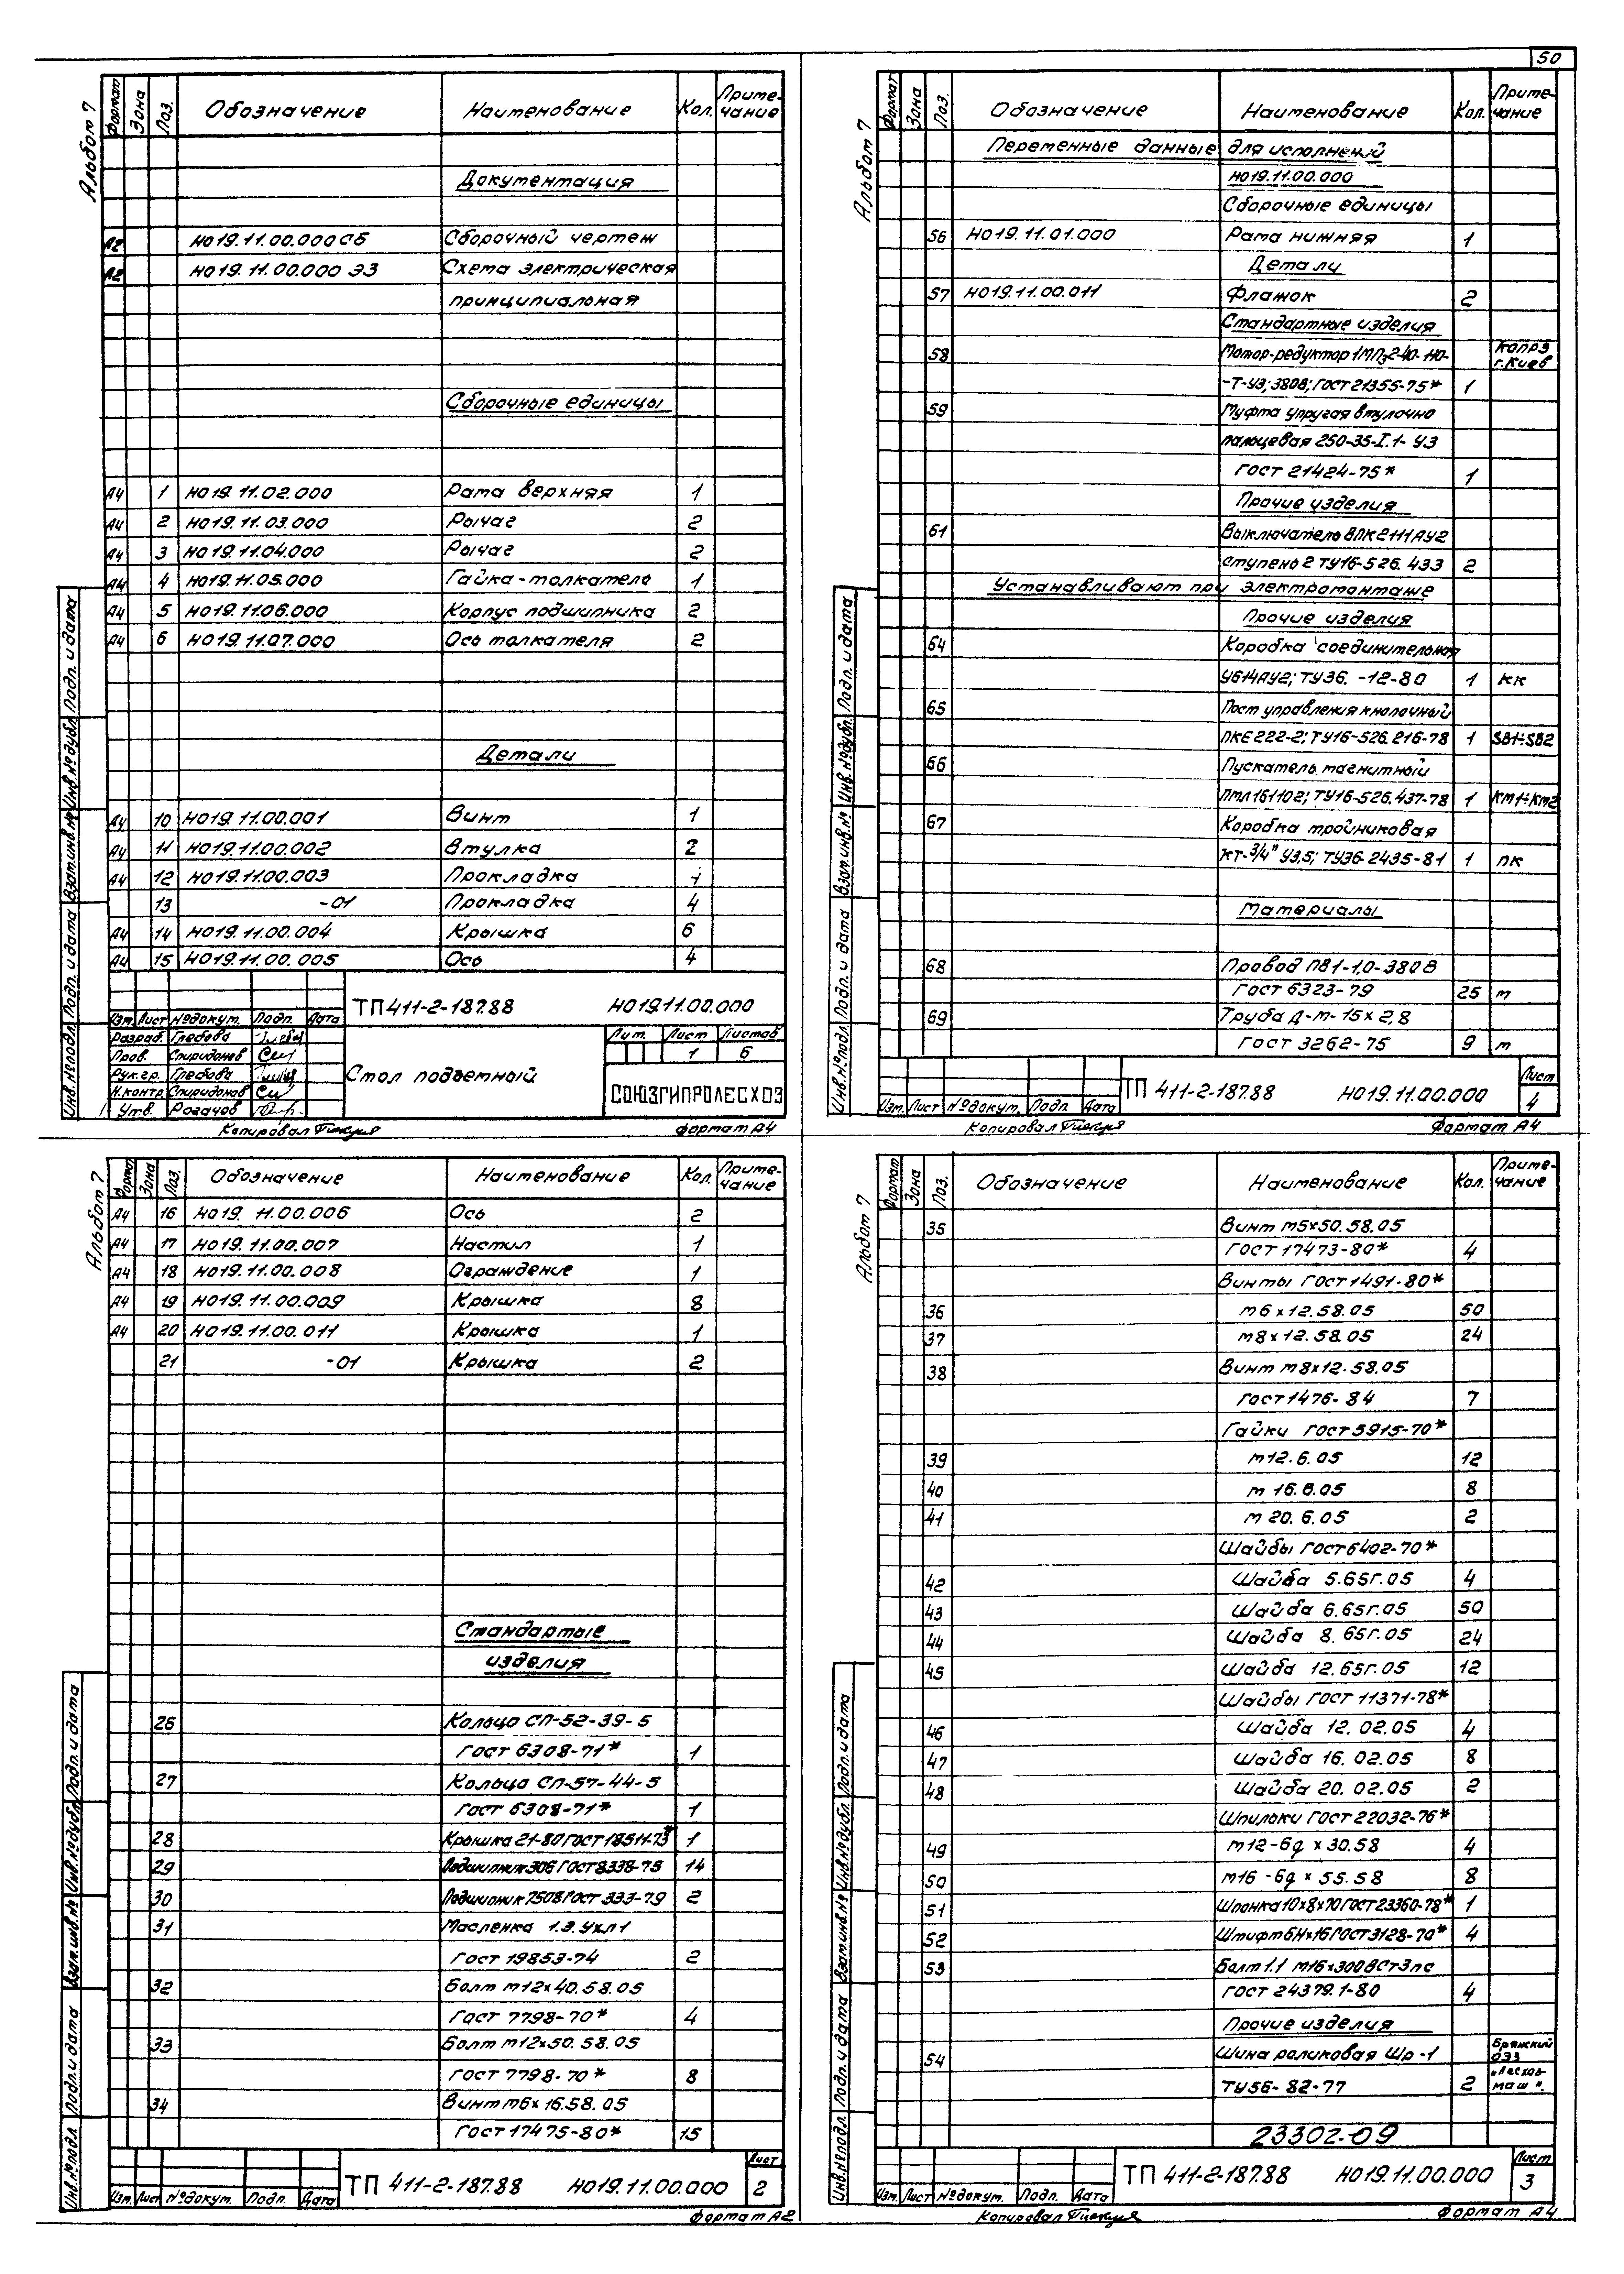 50
Альбом 7
Формат Зона Поз. Обозначение Наименование Кол. Приме-чание
Документация
А2 НО19.11.00.000СБ Сборочный чертеж
А2 НО19.11.00.000 Э3 Схема электрическая
принципиальная
Сборочные единицы
А4 1 НО19.11.02.000 Рама верхняя 1
А4 2 НО19.11.03.000 Рычаг 2
А4 3 НО19.11.04.000 Рычаг 2
А4 4 НО19.11.05.000 Гайка-толкатель 1
А4 5 НО19.11.06.000 Корпус подшипника 2
А4 6 НО19.11.07.000 Ось толкателя 2
Детали
А4 10 НО19.11.00.001 Винт 1
А4 11 НО19.11.00.002 Втулка 2
А4 12 НО19.11.00.003 Прокладка
13 -01 Прокладка 4
А4 14 НО19.11.00.004 Крышка 6
А4 15 НО19.11.00.005 Ось 4
Инв.№подл. Подп. и дата Взам.инв.№ Инв.№дубл. Подп. и дата
ТП 411-2-187.88 НО19.11.00.000
Изм. Лист №докум. Подп. Дата
Разраб. Глебова
Пров. Спиридонов
Рук.гр. Глебова
Н.контр. Спиридонов
Утв. Рогачов
Стол подъемный
Лит. Лист Листов
1 6
СОЮЗГИПРОЛЕСХОЗ
Копировал Формат А4
Альбом 7
Формат Зона Поз. Обозначение Наименование Кол. Приме-чание
Переменные данные для исполнений
НО19.11.00.000
Сборочные единицы
56 НО19.11.01.000 Рама нижняя 1
Детали
57 НО19.11.00.011 Флажок 2
Стандартные изделия
58 Мотор-редуктор 1МПз2-40-НО- КОПРЭ г.Киев
-Т-У3; 380В; ГОСТ 21355-75* 1
59 Муфта упругая втулочно
пальцевая 250-35-I.1-У3
ГОСТ 21424-75* 1
Прочие изделия
61 Выключатель ВПК2111АУ2
ступень 2 ТУ16-526.433 2
Устанавливают при электромонтаже
Прочие изделия
64 Коробка соединительная
У614АУ2; ТУ36. -12-80 1 КК
65 Пост управления кнопочный
ПКЕ 222-2; ТУ16-526.216-78 1 SB1÷SB2
66 Пускатель магнитный
ПМЛ161102; ТУ16-526.437-78 1 КМ1÷КМ2
67 Коробка тройниковая
КТ-3/4" У3,5; ТУ36-2435-81 1 ПК
Материалы
68 Провод ПВ1-1,0-380В
ГОСТ 6323-79 25 м
69 Труба Д-М-15х2,8
ГОСТ 3262-75 9 м
Инв.№подл. Подп. и дата Взам.инв.№ Инв.№дубл. Подп. и дата
Изм. Лист №докум. Подп. Дата
ТП 411-2-187.88 НО19.11.00.000 Лист 4
Копировал Формат А4
Альбом 7
Формат Зона Поз. Обозначение Наименование Кол. Приме-чание
А4 16 НО19.11.00.006 Ось 2
А4 17 НО19.11.00.007 Настил 1
А4 18 НО19.11.00.008 Ограждение 1
А4 19 НО19.11.00.009 Крышка 8
А4 20 НО19.11.00.011 Крышка 1
21 -01 Крышка 2
Стандартые
изделия
26 Кольцо СП-52-39-5
ГОСТ 6308-71* 1
27 Кольцо СП-57-44-5
ГОСТ 6308-71* 1
28 Крышка 21-80 ГОСТ 18511-73* 1
29 Подшипник 306 ГОСТ 8338-75 14
30 Подшипник 7508 ГОСТ 333-79 2
31 Масленка 1.3.Ухл1
ГОСТ 19853-74 2
32 Болт М12х40.58.05
ГОСТ 7798-70* 4
33 Болт М12х50.58.05
ГОСТ 7798-70* 8
34 Винт М6х16.58.05
ГОСТ 17475-80* 15
Инв.№подл. Подп. и дата Взам.инв.№ Инв.№дубл. Подп. и дата
Изм. Лист №докум. Подп. Дата
ТП 411-2-187.88 НО19.11.00.000 Лист 2
Формат А2
Альбом 7
Формат Зона Поз. Обозначение Наименование Кол. Приме-чание
35 Винт М5х50.58.05
ГОСТ 17473-80* 4
Винты ГОСТ 1491-80*
36 М6х12.58.05 50
37 М8х12.58.05 24
38 Винт М8х12.58.05
ГОСТ 1476-84 7
Гайки ГОСТ 5915-70*
39 М12.6.05 12
40 М 16.6.05 8
41 М 20.6.05 2
Шайбы ГОСТ 6402-70*
42 Шайба 5.65г.05 4
43 Шайба 6.65г.05 50
44 Шайба 8.65г.05 24
45 Шайба 12.65г.05 12
Шайбы ГОСТ 11371-78*
46 Шайба 12.02.05 4
47 Шайба 16.02.05 8
48 Шайба 20.02.05 2
Шпильки ГОСТ 22032-76*
49 М12-6g х 30.58 4
50 М16-6g х 55.58 8
51 Шпонка 10х8х70 ГОСТ 23360-78* 1
52 Штифт 6Нх16 ГОСТ 3128-70* 4
53 Болт 1.1 М16х300 ВСт3пс
ГОСТ 24379.1-80 4
Прочие изделия
54 Шина роликовая Шр-1 Брянский ОЭЗ
ТУ56-82-77 2 „Лесхоз-маш".
23302-09
Инв.№подл. Подп. и дата Взам.инв.№ Инв.№дубл. Подп. и дата
Изм. Лист №докум. Подп. Дата
ТП 411-2-187.88 НО19.11.00.000 Лист 3
Копировал Формат А4